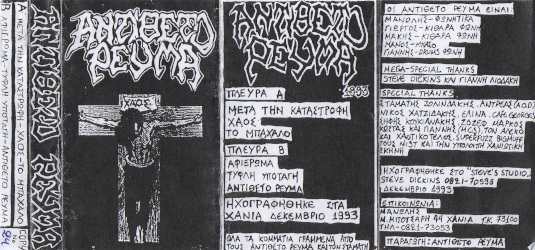 Α ΜΕΤΑ ΤΗΝ ΚΑΤΑΣΤΡΟΦΗ - ΧΑΟΣ - ΤΟ ΜΠΑΧΑΛΟ
Β ΑΦΙΕΡΩΜΑ - ΤΥΦΛΗ ΥΠΟΤΑΓΗ - ΑΝΤΙΘΕΤΟ ΡΕΥΜΑ
ΑΝΤΙΘΕΤΟ ΡΕΥΜΑ
ΑΝΤΙΘΕΤΟ
ΡΕΥΜΑ
ΧΑΟΣ
ΑΝΤΙΘΕΤΟ
ΡΕΥΜΑ
1993
ΠΛΕΥΡΑ Α
ΜΕΤΑ ΤΗΝ ΚΑΤΑΣΤΡΟΦΗ
ΧΑΟΣ
ΤΟ ΜΠΑΧΑΛΟ
ΠΛΕΥΡΑ Β
ΑΦΙΕΡΩΜΑ
ΤΥΦΛΗ ΥΠΟΤΑΓΗ
ΑΝΤΙΘΕΤΟ ΡΕΥΜΑ
ΗΧΟΓΡΑΦΗΘΗΚΕ ΣΤΑ
ΧΑΝΙΑ ΔΕΚΕΜΒΡΙΟ 1993
ΟΛΑ ΤΑ ΚΟΜΜΑΤΙΑ ΓΡΑΜΜΕΝΑ ΑΠΟ
ΤΟΥΣ ΑΝΤΙΘΕΤΟ ΡΕΥΜΑ
ΟΙ ΑΝΤΙΘΕΤΟ ΡΕΥΜΑ ΕΙΝΑΙ:
ΜΑΝΟΛΗΣ-ΦΩΝΗΤΙΚΑ
ΓΙΩΡΓΟΣ-ΚΙΘΑΡΑ ΦΩΝΗ
ΜΑΚΗΣ-ΚΙΘΑΡΑ ΦΩΝΗ
ΜΑΝΟΣ-ΜΠΑΣΟ
ΓΙΑΝΝΗΣ-DRUMS ΦΩΝΗ
MEGA-SPECIAL THANKS
STEVE DICKINS ΚΑΙ ΓΙΑΝΝΗ ΛΙΟΔΑΚΗ
SPECIAL THANKS
ΣΤΑΜΑΤΗΣ ΑΝΤΡΕΑΣ (A.O.D.)
ΝΙΚΟΣ ΧΑΤΖΙΔΑΚΗΣ, ΕΛΙΝΑ
ΜΑΡΚΟΣ
ΚΩΣΤΑΣ ΚΑΙ ΓΙΑΝΝΗΣ ΤΟΝ ΑΛΕΚΟ
SUPERFUZZ BIGMUFF
ΤΟΥΣ MIST ΚΑΙ ΤΗΝ ΥΠΟΛΟΙΠΗ ΧΑΝΙΩΤΙΚΗ
ΣΚΗΝΗ
ΗΧΟΓΡΑΦΗΘΗΚΕ ΣΤΟ "STEVE'S STUDIO"
STEVE DICKINS 0821-70598
ΔΕΚΕΜΒΡΙΟ 1993
ΕΠΙΚΟΙΝΩΝΙΑ:
ΜΑΝΩΛΗΣ
Μ. ΜΠΟΤΣΑΡΗ 44 ΧΑΝΙΑ Τ.Κ. 73100
ΤΗΛ-0821-73053
ΠΑΡΑΓΩΓΗ: ΑΝΤΙΘΕΤΟ ΡΕΥΜΑ